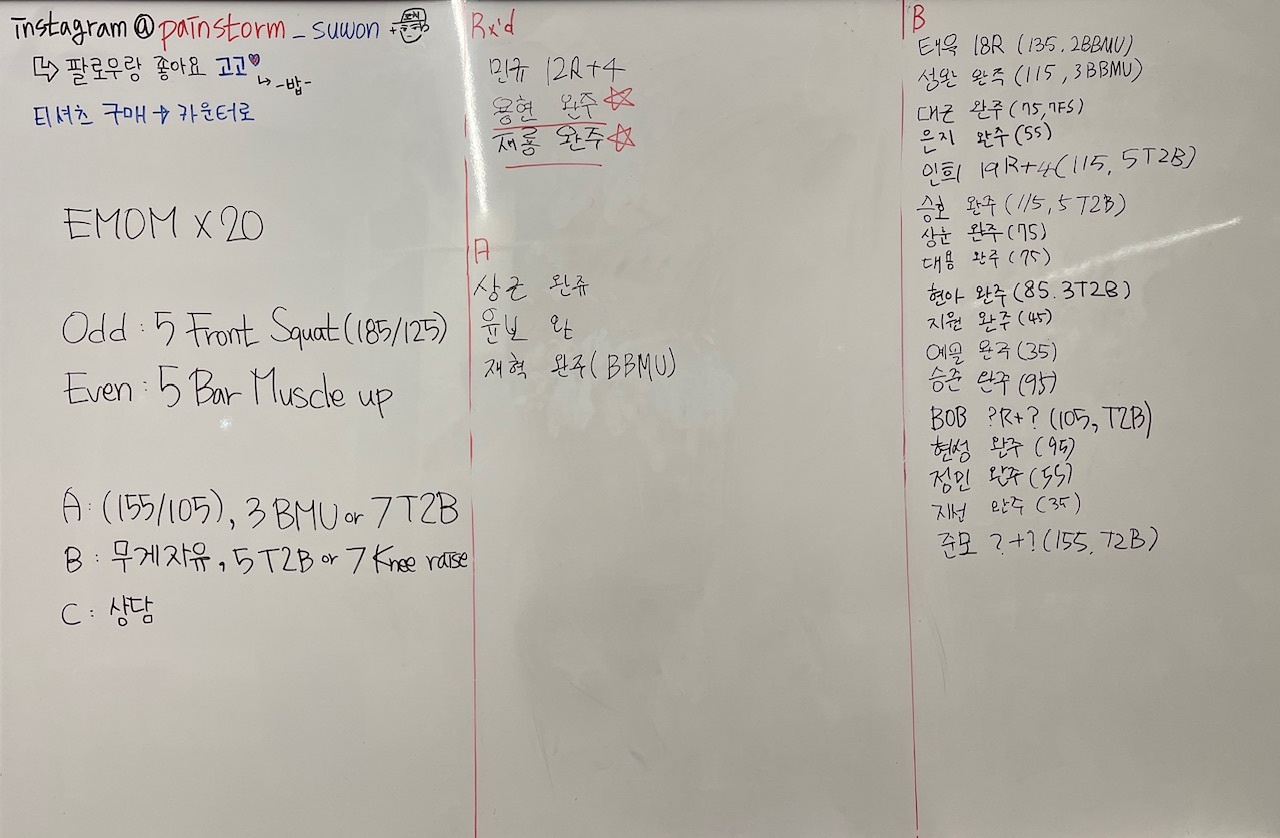 instagram @ painstorm_suwon +
↳ 팔로우랑 좋아요 고고♥
↳ -밥-
티셔츠 구매 → 카운터로
EMOM x 20
Odd : 5 Front Squat (185/125)
Even : 5 Bar Muscle up
A : (155/105), 3 BMU or 7 T2B
B : 무게자유, 5 T2B or 7 Knee raise
C : 상담
Rx'd
민규 12R+4
용현 완주 ☆
재룡 완주 ☆
A
상근 완쥬
윤보 완
재혁 완주(BBMU)
B
태욱 18R (135, 2BBMU)
성완 완주 (115, 3BBMU)
대근 완주 (75, 7FS)
은지 완주 (55)
인희 19R+4 (115, 5T2B)
승호 완주 (115, 5T2B)
상눈 완주 (75)
대용 완주 (75)
현아 완주 (85. 3T2B)
지원 완주 (45)
완주 (35)
승준 완주 (95)
BOB ?R+? (105, T2B)
현성 완주 (95)
정민 완주 (55)
지선 완주 (35)
준모 ?+? (155, T2B)